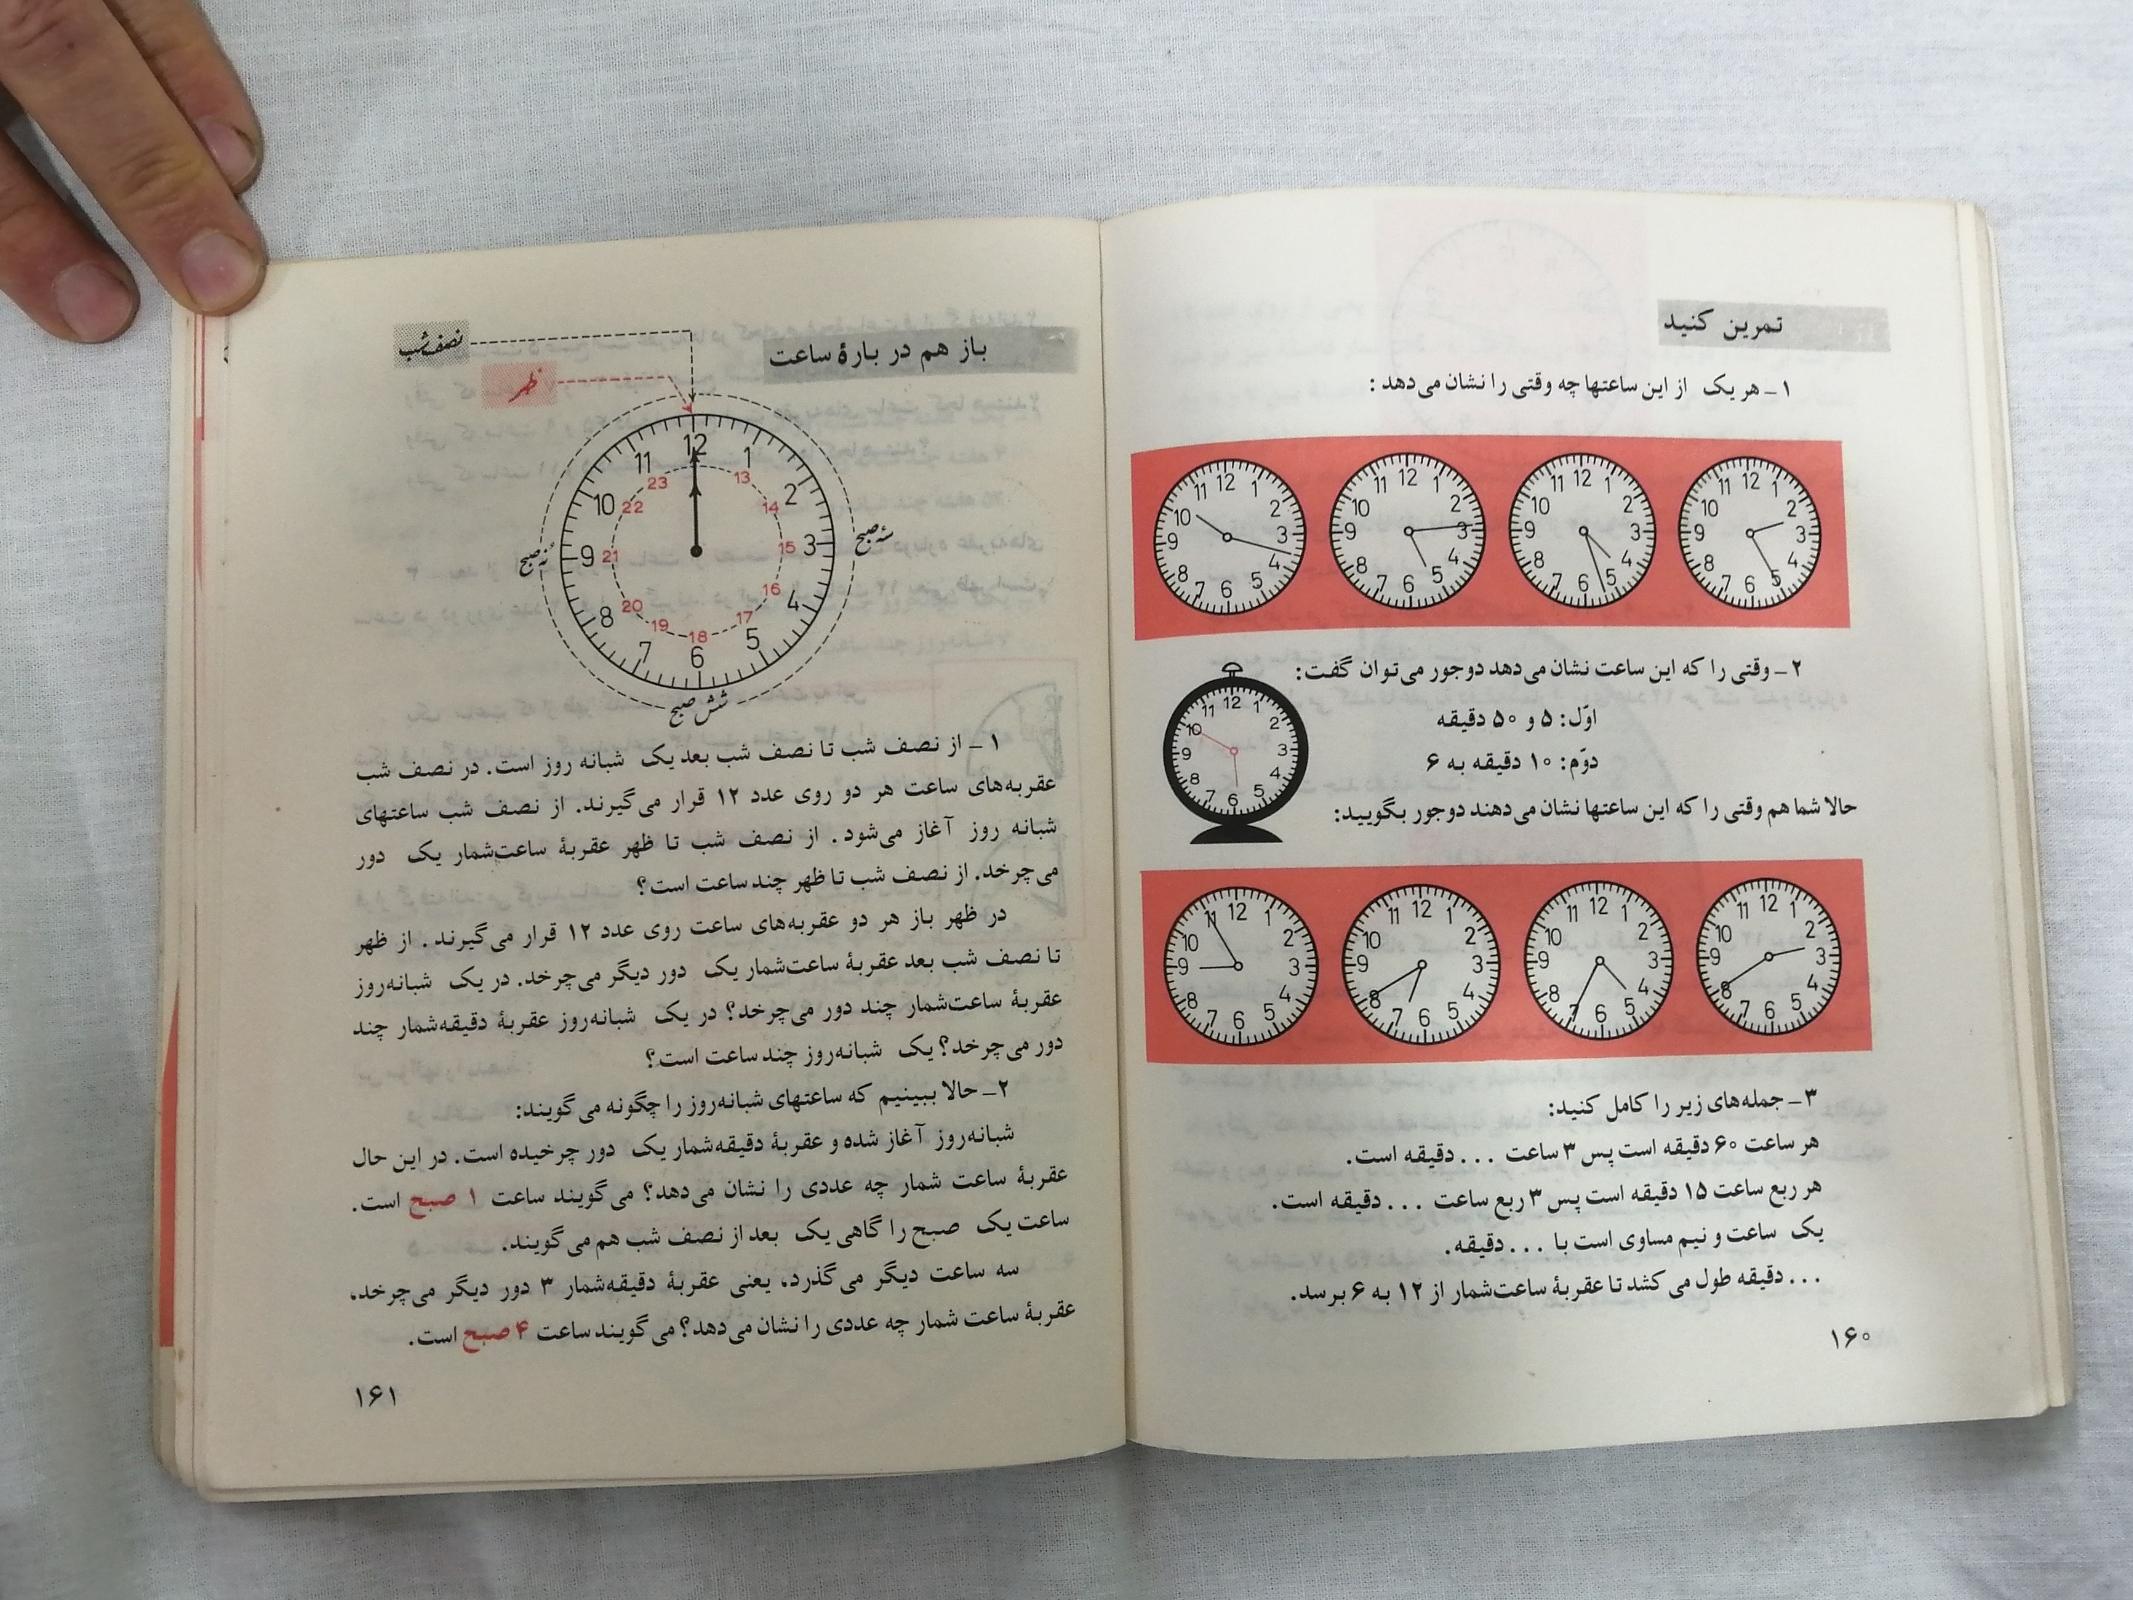 تمرین کنید
۱ـ هر یک از این ساعتها چه وقتی را نشان می‌دهد :
12 1 2 3 4 5 6 7 8 9 10 11
12 1 2 3 4 5 6 7 8 9 10 11
12 1 2 3 4 5 6 7 8 9 10 11
12 1 2 3 4 5 6 7 8 9 10 11
۲ـ وقتی را که این ساعت نشان می‌دهد دوجور می‌توان گفت:
اوّل: ۵ و ۵۰ دقیقه
دوّم: ۱۰ دقیقه به ۶
12 1 2 3 4 5 6 7 8 9 10 11
حالا شما هم وقتی را که این ساعتها نشان می‌دهند دوجور بگویید:
12 1 2 3 4 5 6 7 8 9 10 11
12 1 2 3 4 5 6 7 8 9 10 11
12 1 2 3 4 5 6 7 8 9 10 11
12 1 2 3 4 5 6 7 8 9 10 11
۳ـ جمله‌های زیر را کامل کنید:
هر ساعت ۶۰ دقیقه است پس ۳ ساعت ... دقیقه است.
هر ربع ساعت ۱۵ دقیقه است پس ۳ ربع ساعت ... دقیقه است.
یک ساعت و نیم مساوی است با ... دقیقه.
... دقیقه طول می‌کشد تا عقربهٔ ساعت‌شمار از ۱۲ به ۶ برسد.
۱۶۰
باز هم در بارهٔ ساعت
نصف شب
ظهر
12 1 2 3 4 5 6 7 8 9 10 11
13 14 15 16 17 18 19 20 21 22 23
سهٔ صبح
شش صبح
نُه صبح
۱ـ از نصف شب تا نصف شب بعد یک شبانه روز است. در نصف شب
عقربه‌های ساعت هر دو روی عدد ۱۲ قرار می‌گیرند. از نصف شب ساعتهای
شبانه روز آغاز می‌شود. از نصف شب تا ظهر عقربهٔ ساعت‌شمار یک دور
می‌چرخد. از نصف شب تا ظهر چند ساعت است؟
در ظهر باز هر دو عقربه‌های ساعت روی عدد ۱۲ قرار می‌گیرند. از ظهر
تا نصف شب بعد عقربهٔ ساعت‌شمار یک دور دیگر می‌چرخد. در یک شبانه‌روز
عقربهٔ ساعت‌شمار چند دور می‌چرخد؟ در یک شبانه‌روز عقربهٔ دقیقه‌شمار چند
دور می‌چرخد؟ یک شبانه‌روز چند ساعت است؟
۲ـ حالا ببینیم که ساعتهای شبانه‌روز را چگونه می‌گویند:
شبانه‌روز آغاز شده و عقربهٔ دقیقه‌شمار یک دور چرخیده است. در این حال
عقربهٔ ساعت شمار چه عددی را نشان می‌دهد؟ می‌گویند ساعت ۱ صبح است.
ساعت یک صبح را گاهی یک بعد از نصف شب هم می‌گویند.
سه ساعت دیگر می‌گذرد، یعنی عقربهٔ دقیقه‌شمار ۳ دور دیگر می‌چرخد،
عقربهٔ ساعت شمار چه عددی را نشان می‌دهد؟ می‌گویند ساعت ۴ صبح است.
۱۶۱